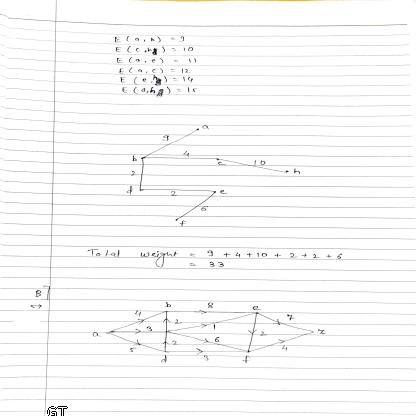 E (a, b) = 9
E (c, h) = 10
E (a, e) = 11
E (a, c) = 12
E (e, ) = 14
E (d, h) = 15
a
9
b 4 c 10 h
2
d 2 e
6
f
Total weight = 9 + 4 + 10 + 2 + 2 + 6
= 33
B]
↔
b 8 e
4 2 7
a 3 1 2 z
5 2 6 4
d 3 f
GT